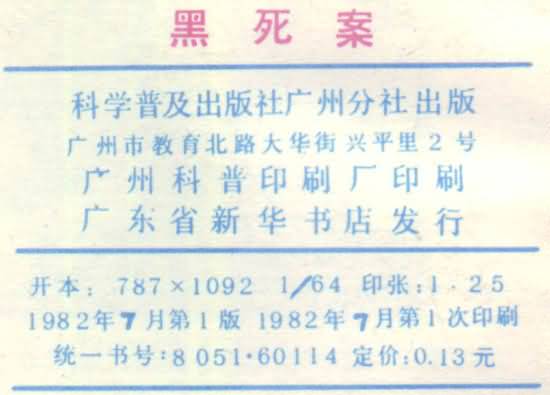 黑死案
科学普及出版社广州分社出版
广州市教育北路大华街兴平里2号
广州科普印刷厂印刷
广东省新华书店发行
开本：787×1092 1/64 印张:1·25
1982年7月第1版 1982年7月第1次印刷
统一书号:8051·60114 定价:0.13元